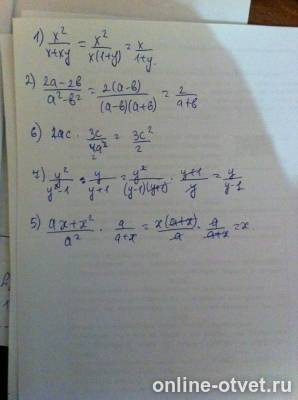 1) x²/(x+xy) = x²/(x(1+y)) = x/(1+y)
2) (2a-2b)/(a²-b²) = 2(a-b)/((a-b)(a+b)) = 2/(a+b)
6) 2ac · 3c/4a² = 3c²/2
7) y²/(y²-1) : y/(y+1) = y²/((y-1)(y+1)) · (y+1)/y = y/(y-1)
5) (ax+x²)/a² · a/(a+x) = x(a+x)/a · a/(a+x) = x
online-otvet.ru